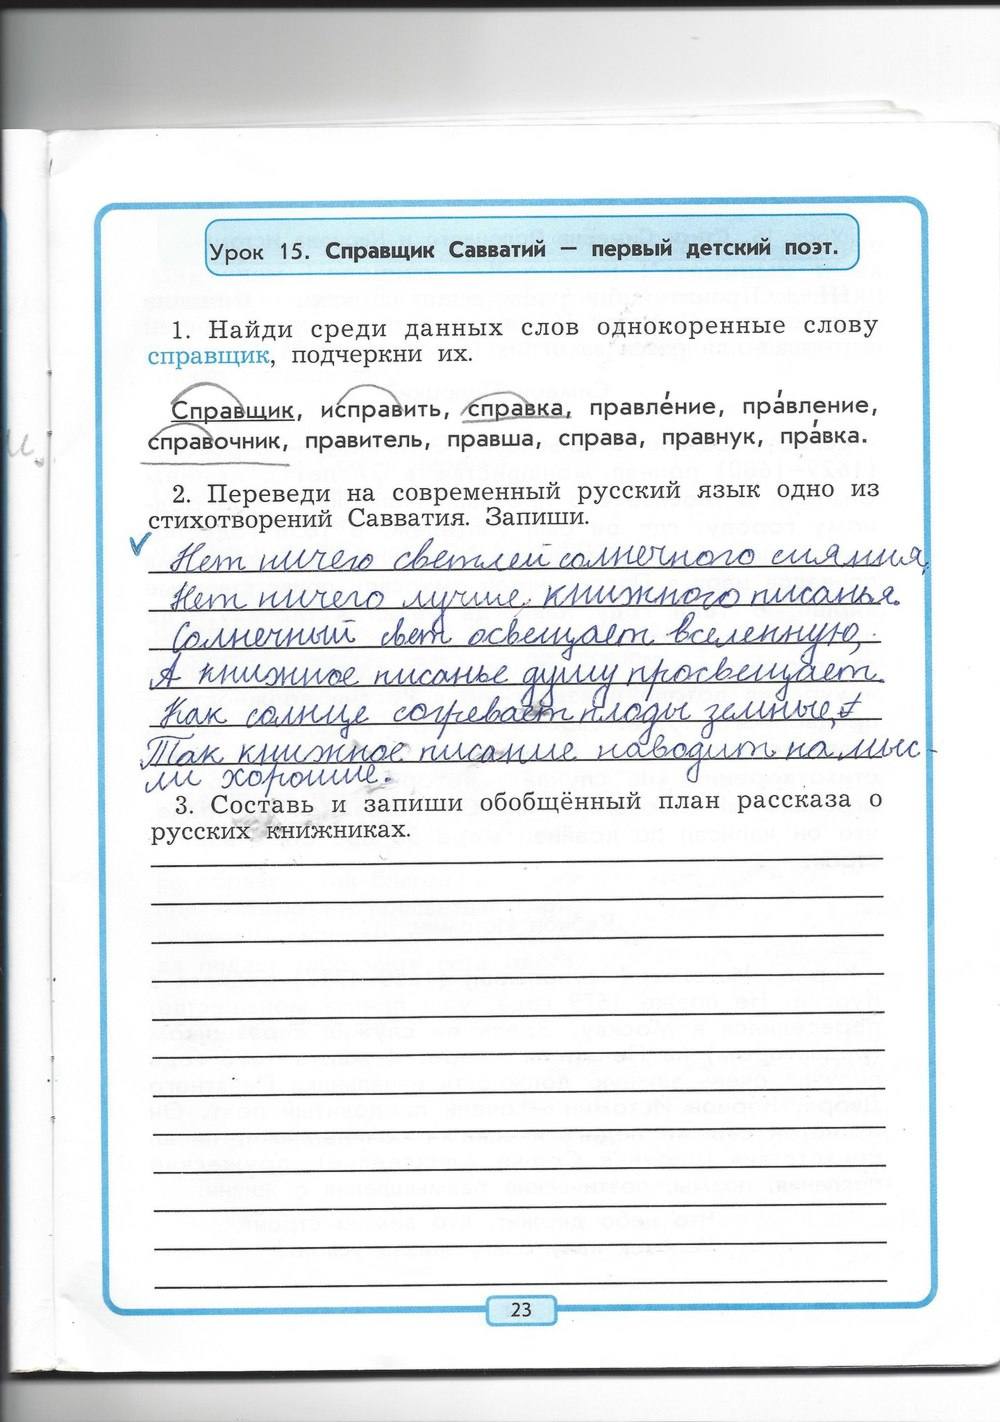 Урок 15. Справщик Савватий — первый детский поэт.
1. Найди среди данных слов однокоренные слову
справщик, подчеркни их.
Справщик, исправить, справка, правле́ние, пра́вление,
справочник, правитель, правша, справа, правнук, пра́вка.
2. Переведи на современный русский язык одно из
стихотворений Савватия. Запиши.
Нет ничего светлей солнечного сияния,
Нет ничего лучше, книжного писанья.
Солнечный свет освещает вселенную,
А книжное писанье душу просвещает.
Как солнце согревает плоды земные,
Так книжное писание наводит на мыс-
ли хорошие.
3. Составь и запиши обобщённый план рассказа о
русских книжниках.
23